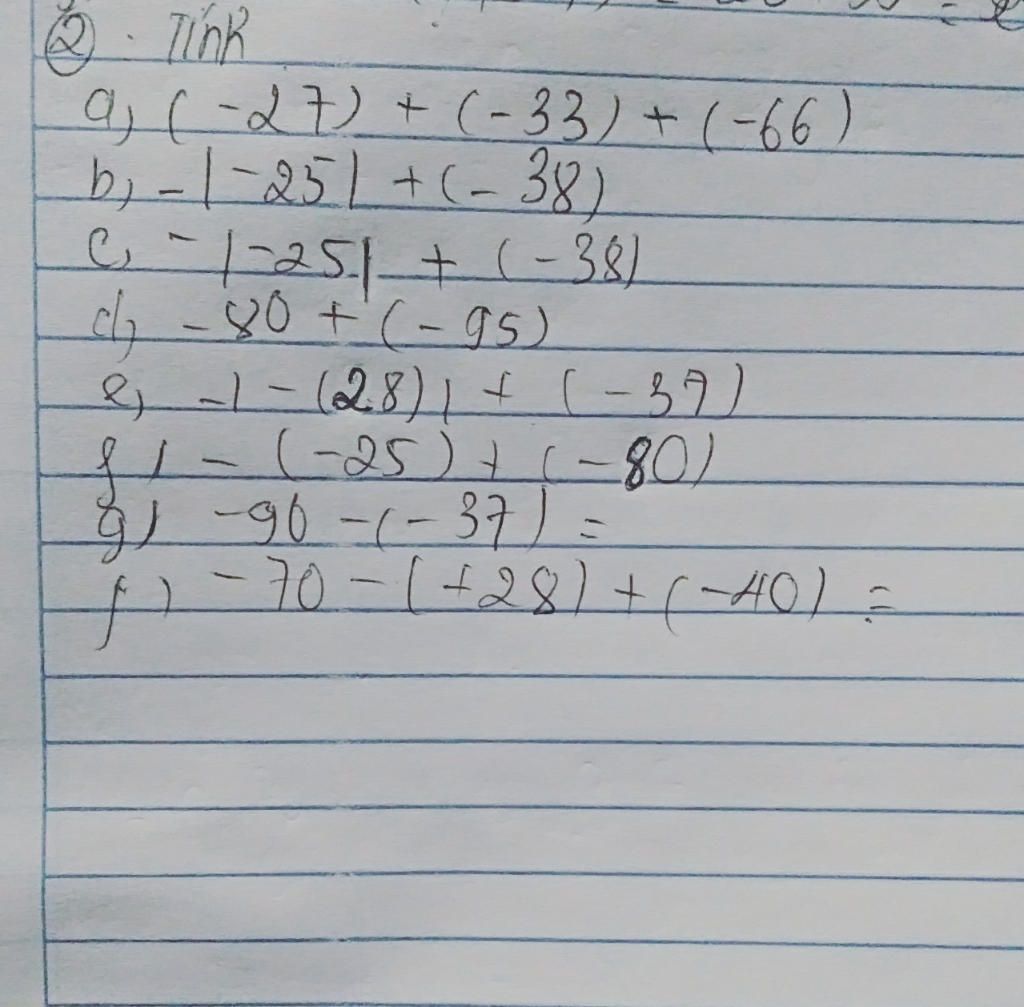 ② . Tính
a) (-27) + (-33) + (-66)
b) -|-25| + (-38)
c) -|-25| + (-38)
d) -80 + (-95)
e) -|-(28)| + (-37)
f) -(-25) + (-80)
g) -90 -(-37) =
f) -70 -(+28) + (-40) =